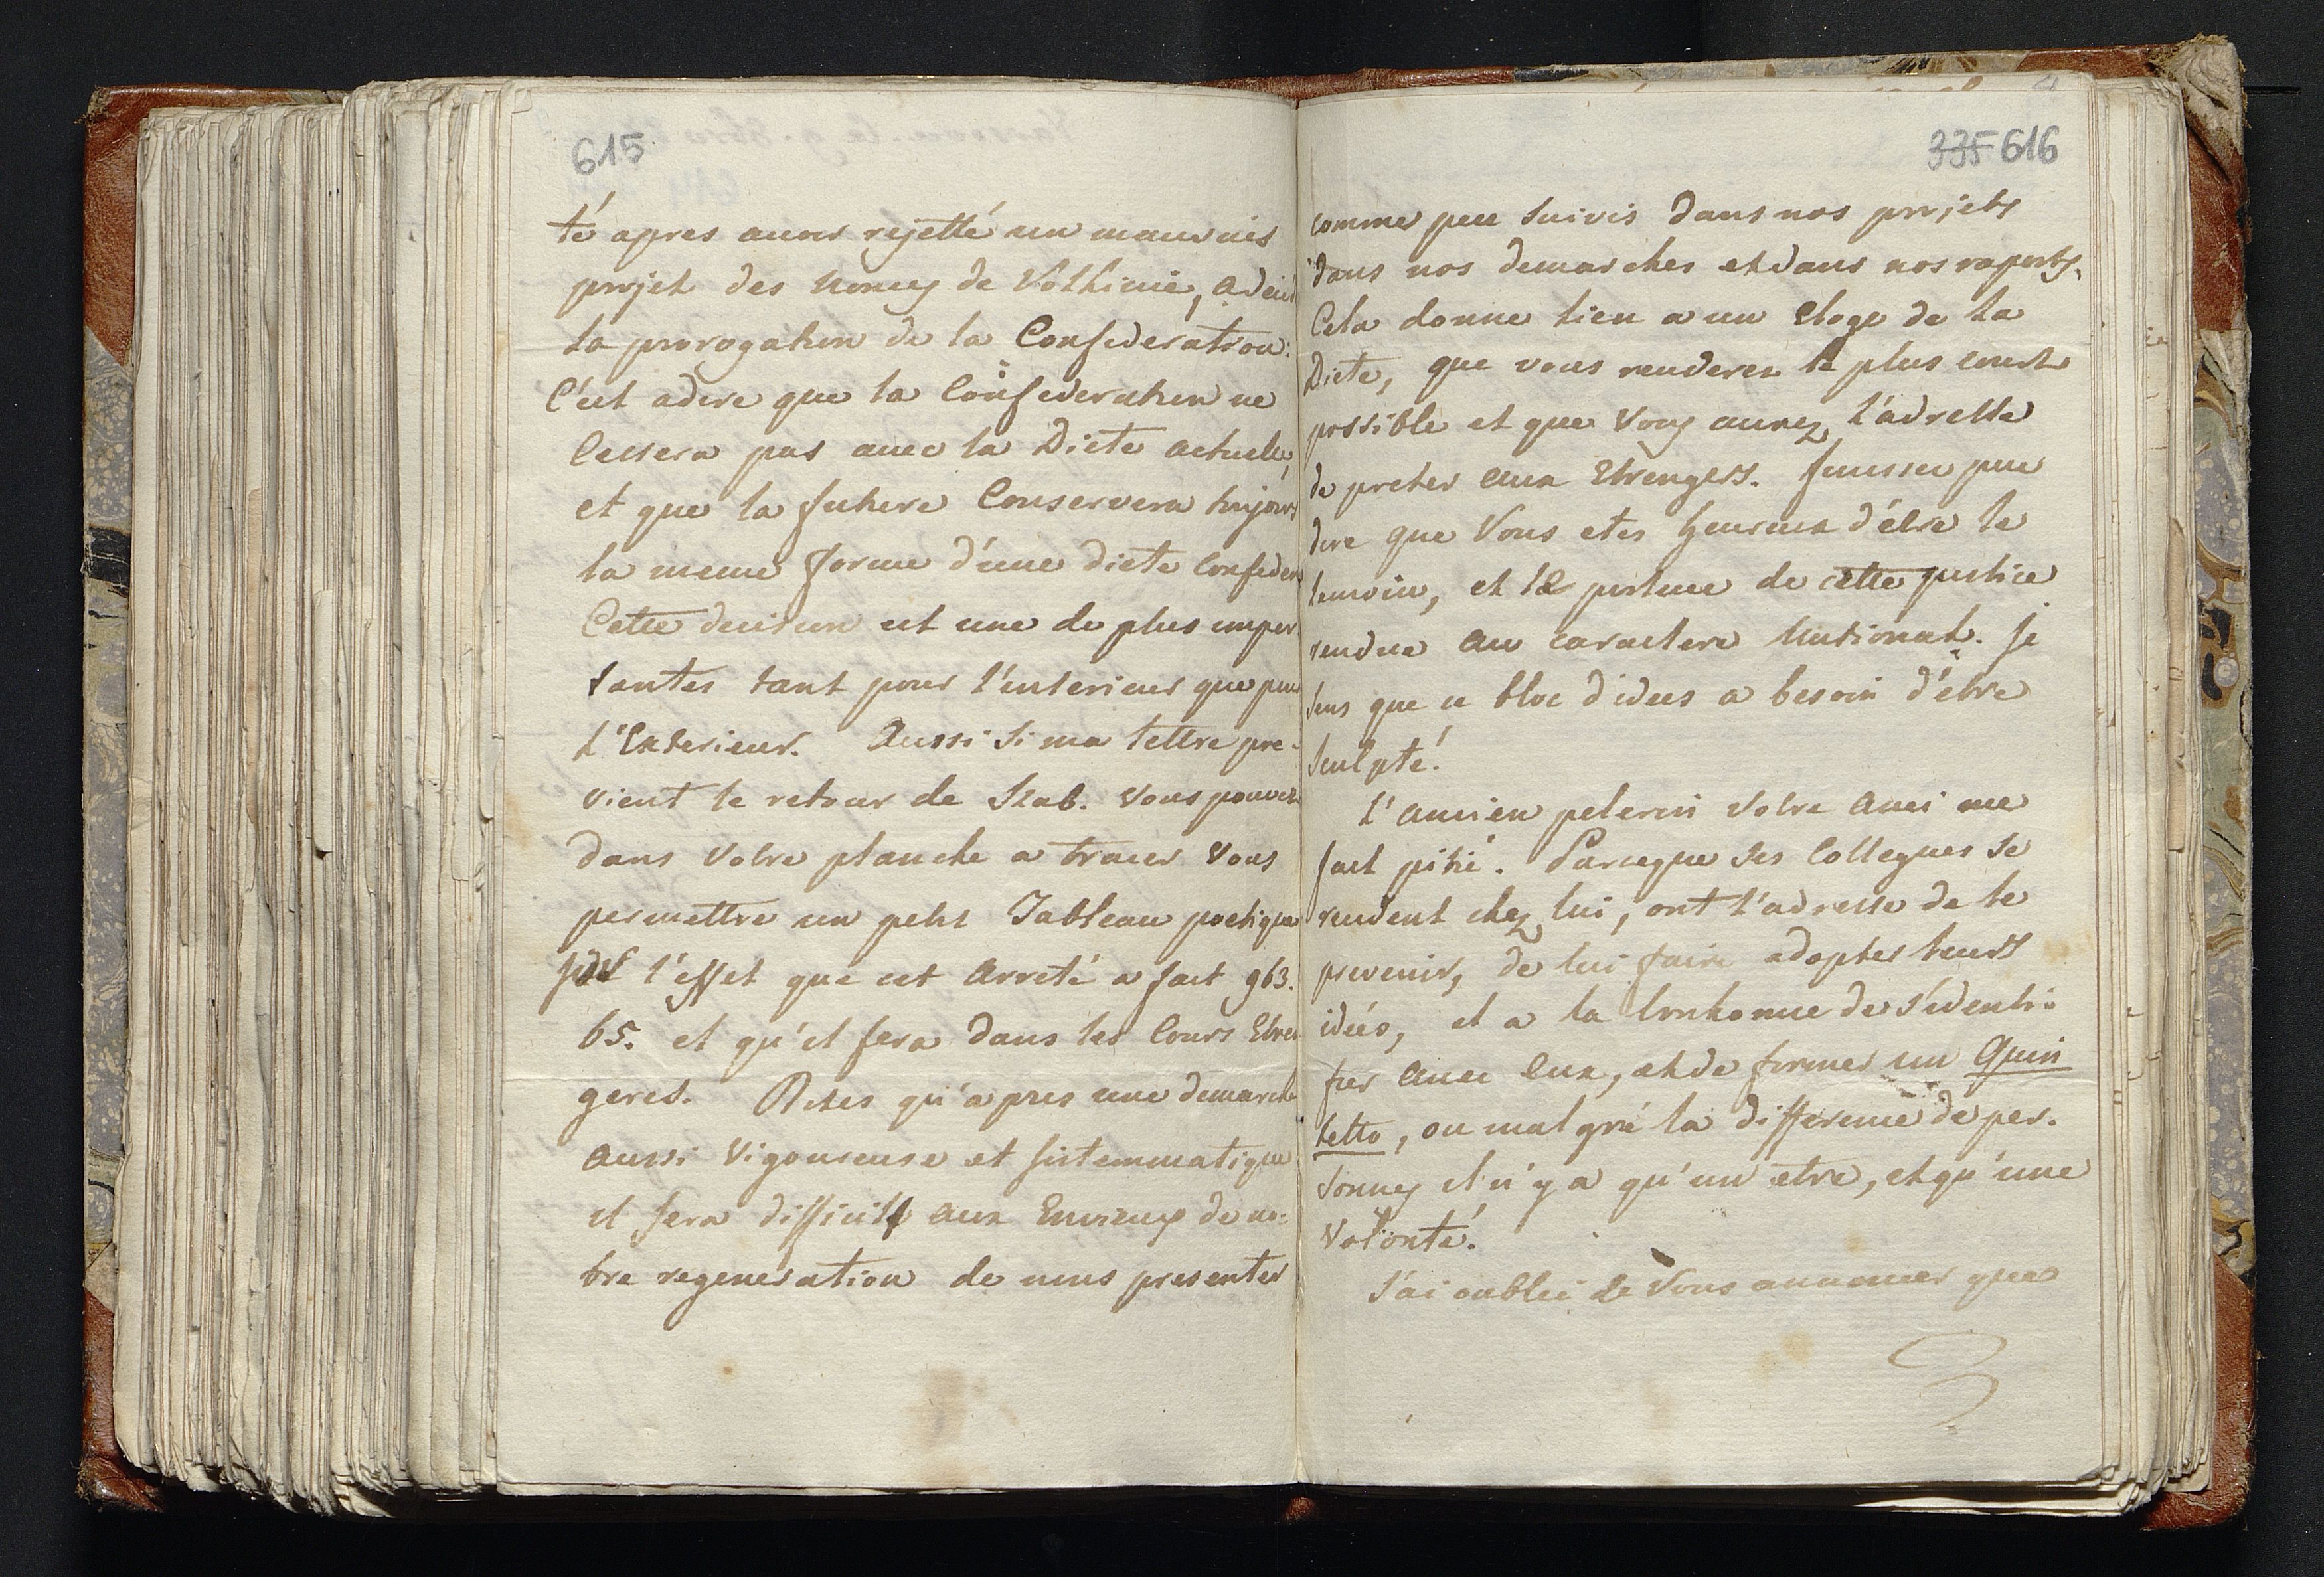 615
té apres avoir rejetté un mauvais
projet des Nonces de Volhinie, a decidé
la prorogation de la Confederation:
C'est adire que la Confederation ne
Cessera pas avec la Diete actuelle,
et que la future Conservera toujours
la meme forme d'une Diete Confeder
Cette decision est une de plus impor
tantes tant pour l'interieur que pour
L'Exterieur. Aussi si ma lettre pre-
vient le retour de Szab. vous pouvez
dans votre planche a tracer vous
permettre un petit Tableau poetique
sur l'effet que cet Arreté a fait 963.
65. et qu'il fera dans les Cours Etran
geres. Dites qu'apres une demarche
aussi vigoureuse et sistemmatique
il sera difficile aux Envieux de no-
tre regeneration de nous presenter
335 616
comme peu suivis dans nos projets
dans nos demarches et dans nos raports.
Cela donne lieu a un Eloge de la
Diete, que vous renderez le plus court
possible et que vous aurez l'adresse
de preter aux Etrengers. finissez par
dire que Vous etes heureux d'être le
temoin, et le porteur de cette justice
rendue au caractere National. Je
sens que ce bloc d'idees a besoin d'être
sculpté.
L'ancien pelerin votre Ami me
fait pitié. Parceque ses Collegues se
rendent chez lui, ont l'adresse de le
prevenir, de lui faire adopter leurs
idées, il a la bonhomie de s'identi-
fier avec Eux, et de former un Quin
tetto, ou malgré la difference de per-
sonnes il n'y a qu'un etre, et qu'une
Volonté.
J'ai oublié de Vous annoncer que